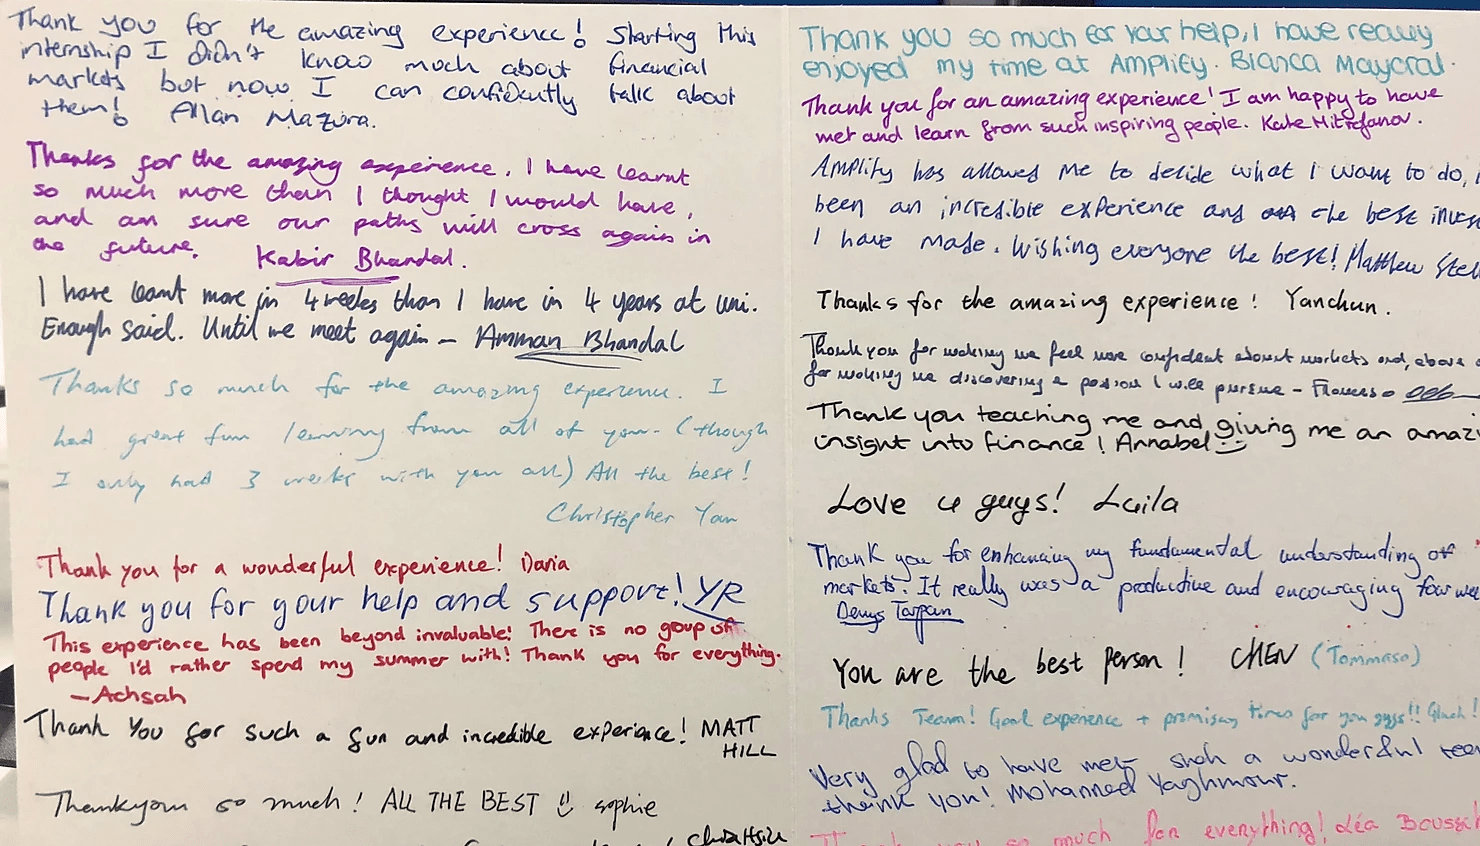 Thank you for the amazing experience! Starting this
internship I didn't know much about financial
markets but now I can confidently talk about
them! Allan Mazura.
Thanks for the amazing experience. I have learnt
so much more than I thought I would have,
and am sure our paths will cross again in
the future. Kabir Bhandal.
I have learnt more in 4 weeks than I have in 4 years at uni.
Enough said. Until we meet again - Amman Bhandal
Thanks so much for the amazing experience. I
had great fun learning from all of you. (though
I only had 3 weeks with you all) All the best!
Christopher Yan
Thank you for a wonderful experience! Daria
Thank you for your help and support! YR
This experience has been beyond invaluable! There is no group of
people I'd rather spend my summer with! Thank you for everything.
- Achsah
Thank you for such a fun and incredible experience! MATT
HILL
Thankyou so much! ALL THE BEST sophie
Thank you so much for your help, I have really
enjoyed my time at Amplify. Bianca Maycral.
Thank you for an amazing experience! I am happy to have
met and learn from such inspiring people. Kate Mitrofanov.
Amplify has allowed me to decide what I want to do,
been an incredible experience and the best inves
I have made. Wishing everyone the best! Matthew Ste
Thanks for the amazing experience! Yanchun.
Thank you for making me feel more confident about markets and, above
for making me discovering a passion I will pursue -
Thank you teaching me and giving me an amazi
insight into finance! Annabel
Love u guys! Laila
Thank you for enhancing my fundamental understanding of
markets. It really was a productive and encouraging four wee
Denys Tarpan
You are the best person! CHEN (Tommaso)
Thanks Team! Great experience + promising times for you guys!!
Very glad to have met such a wonderful tea
thank you! Mohanned Yaghmour.
so much for everything! Léa Boussi